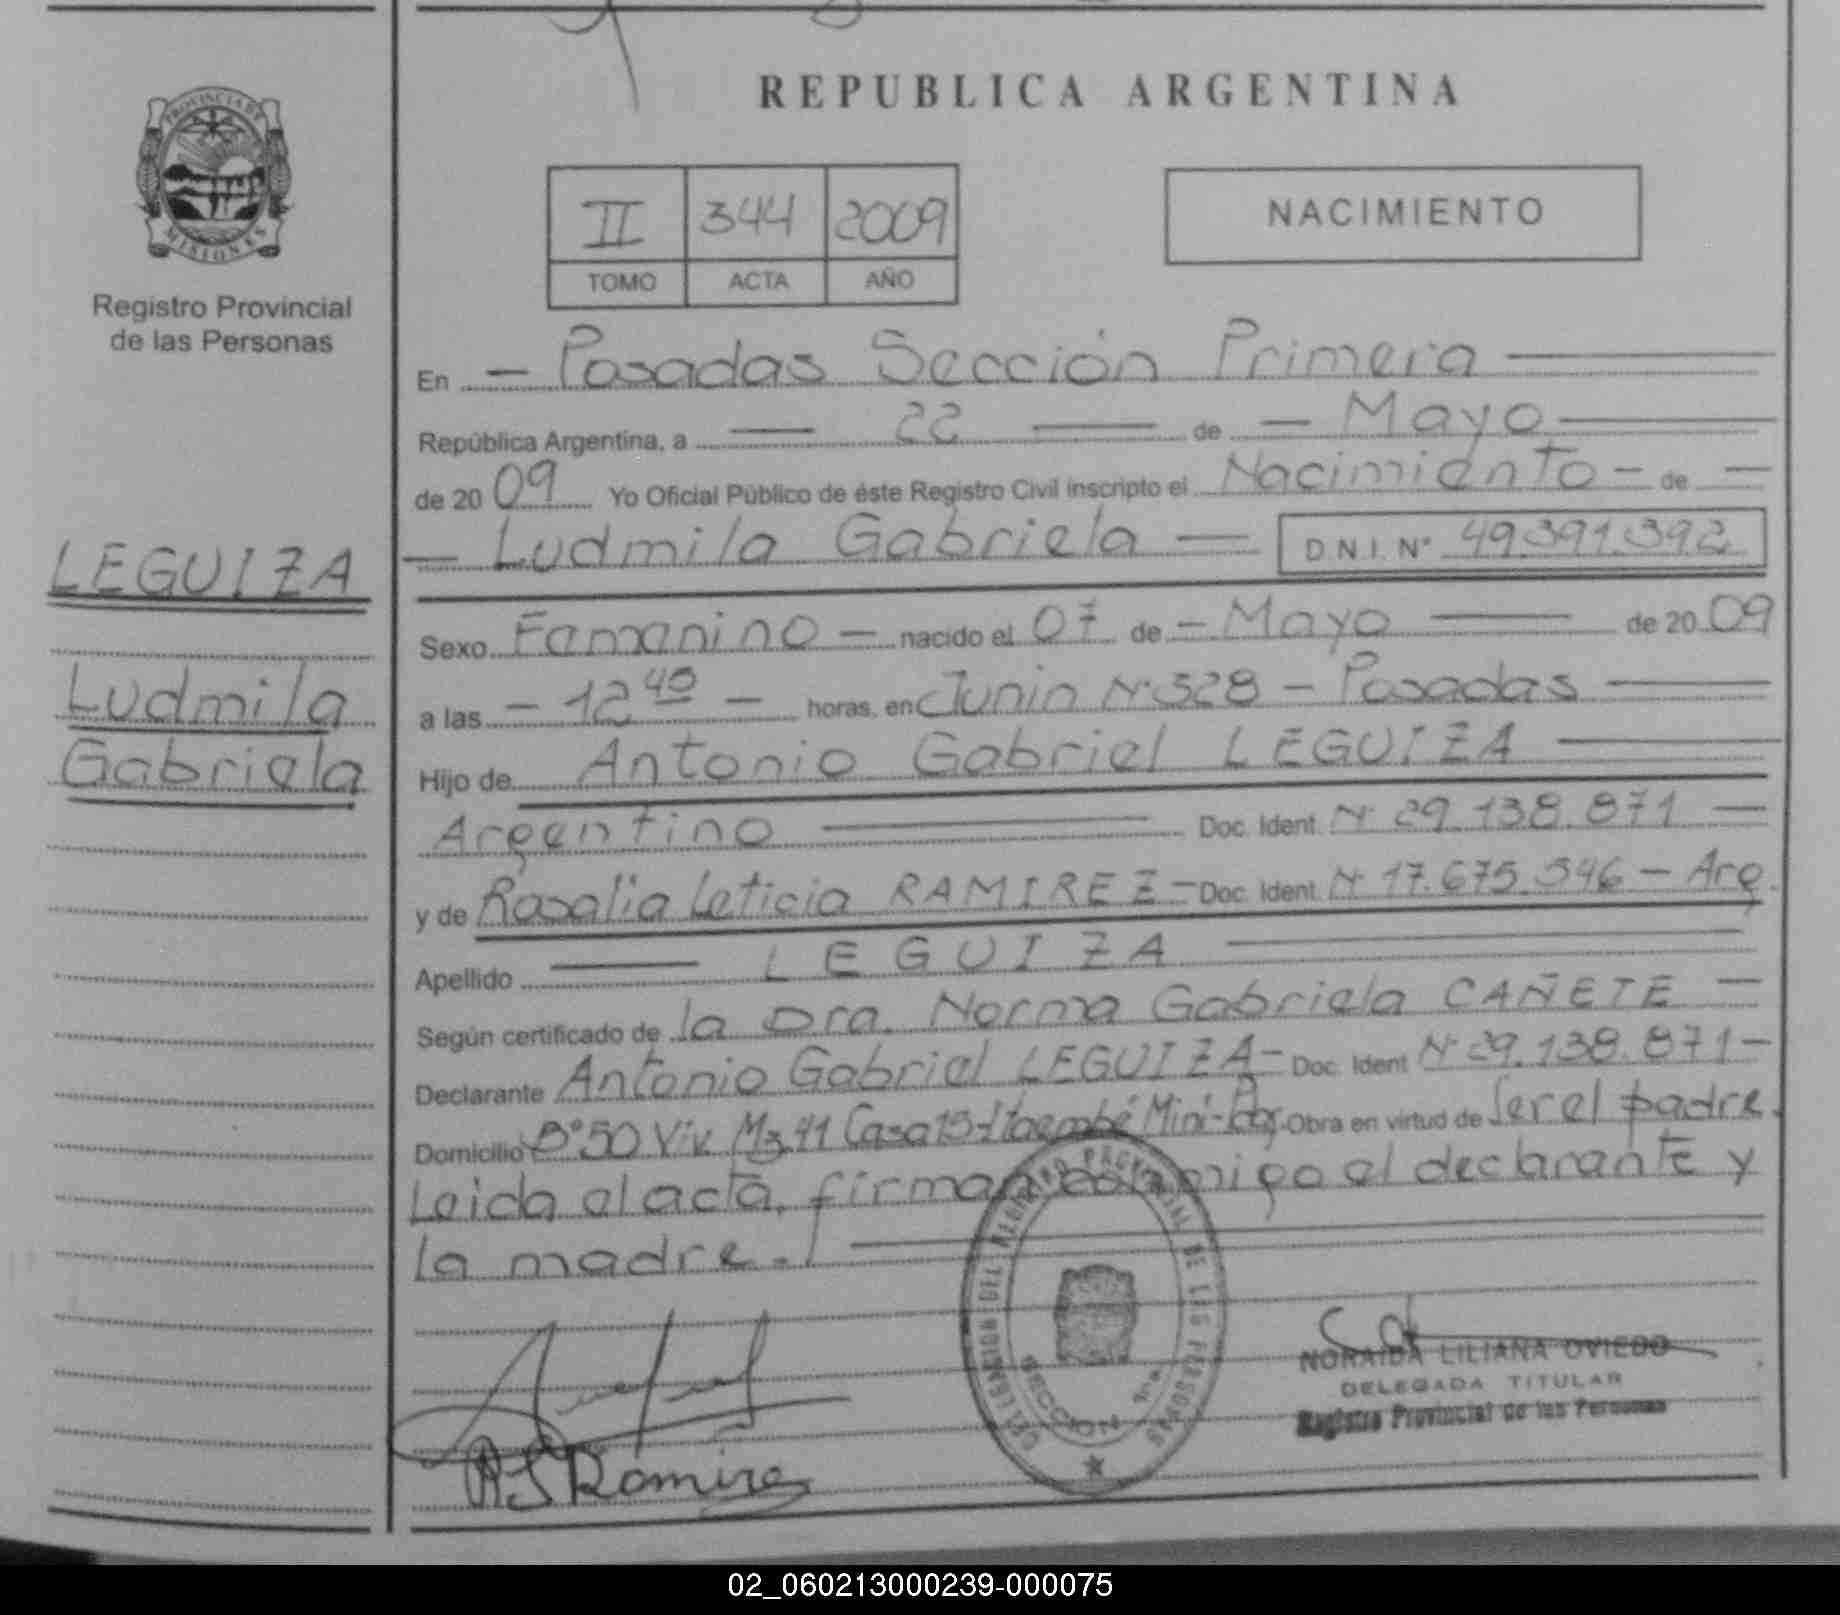 REPUBLICA ARGENTINA
PROVINCIA DE
MISIONES
Registro Provincial
de las Personas
II 344 2009
TOMO ACTA AÑO
NACIMIENTO
En — Posadas Sección Primera —
República Argentina, a — 22 — de — Mayo —
de 20 09 Yo Oficial Público de éste Registro Civil inscripto el Nacimiento — de —
— Ludmila Gabriela — D.N.I. Nº 49.391.392
LEGUIZA
Ludmila
Gabriela
Sexo Femenino — nacido el 07 de — Mayo — de 20 09
a las — 12 40 — horas, en Junin Nº 328 — Posadas —
Hijo de Antonio Gabriel LEGUIZA —
Argentino — Doc. Ident. Nº 29.138.871 —
y de Rosalia Leticia RAMIREZ — Doc. Ident. Nº 17.675.346 — Arg.
Apellido — LEGUIZA —
Según certificado de la Dra. Norma Gabriela CAÑETE —
Declarante Antonio Gabriel LEGUIZA — Doc. Ident Nº 29.138.871 —
Domicilio Bº 50 Viv. Mz. 41 Casa 13 - Itaembé Miní - Pos. Obra en virtud de Ser el padre.
Leida el acta, firman conmigo el declarante y
la madre. —
DELEGACION DEL REGISTRO PROVINCIAL DE LAS PERSONAS
SECCION 1ra.
NORAIDA LILIANA OVIEDO
DELEGADA TITULAR
Registro Provincial de las Personas
Ramirez
02_060213000239-000075